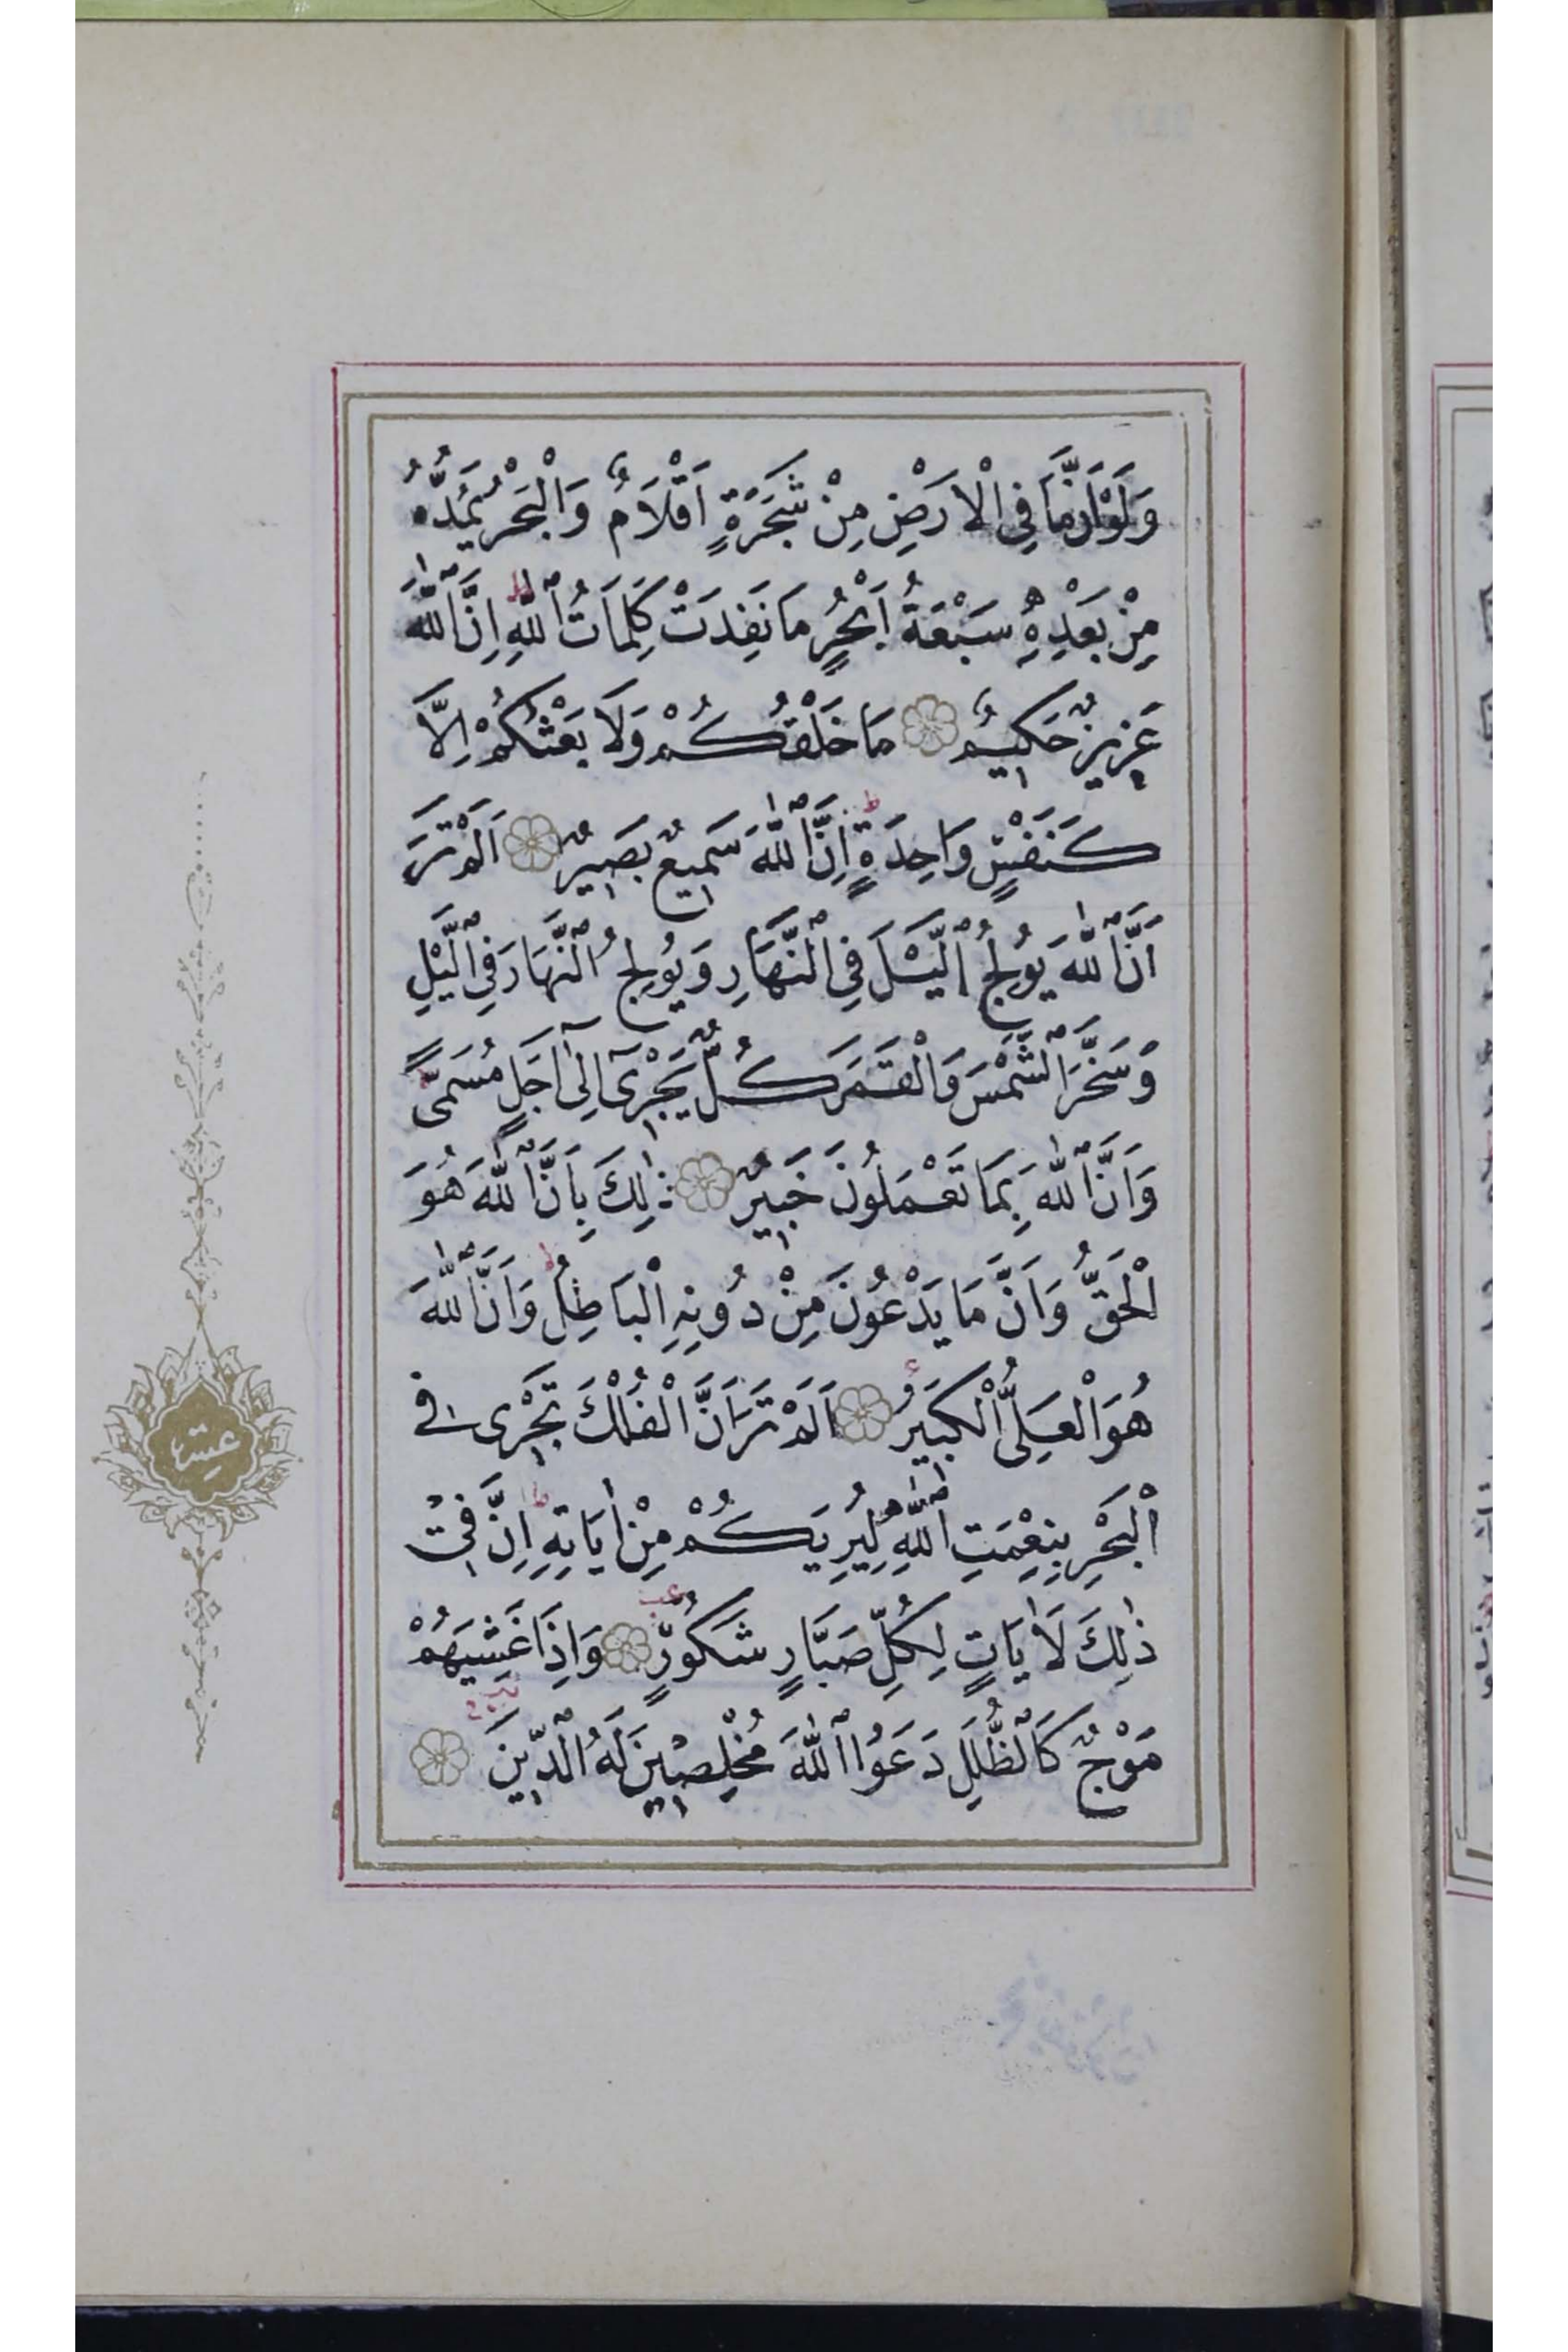 وَلَوْ اَنَّمَا فِي الْاَرْضِ مِنْ شَجَرَةٍ اَقْلَامٌ وَالْبَحْرُ يَمُدُّهُ
مِنْ بَعْدِهِ سَبْعَةُ اَبْحُرٍ مَا نَفِدَتْ كَلِمَاتُ اللّٰهِ ط اِنَّ اللّٰهَ
عَزِيزٌ حَكِيمٌ مَا خَلْقُكُمْ وَلَا بَعْثُكُمْ اِلَّا
كَنَفْسٍ وَاحِدَةٍ ط اِنَّ اللّٰهَ سَمِيعٌ بَصِيرٌ اَلَمْ تَرَ
اَنَّ اللّٰهَ يُولِجُ الَّيْلَ فِي النَّهَارِ وَيُولِجُ النَّهَارَ فِي الَّيْلِ
وَسَخَّرَ الشَّمْسَ وَالْقَمَرَ كُلٌّ يَجْرِىٓ اِلٰٓى اَجَلٍ مُسَمًّى
وَاَنَّ اللّٰهَ بِمَا تَعْمَلُونَ خَبِيرٌ ذٰلِكَ بِاَنَّ اللّٰهَ هُوَ
الْحَقُّ وَاَنَّ مَا يَدْعُونَ مِنْ دُونِهِ الْبَاطِلُ ط وَاَنَّ اللّٰهَ
هُوَ الْعَلِىُّ الْكَبِيرُ ع اَلَمْ تَرَ اَنَّ الْفُلْكَ تَجْرِى فِى
الْبَحْرِ بِنِعْمَتِ اللّٰهِ لِيُرِيَكُمْ مِنْ اٰيَاتِهِ ط اِنَّ فِى
ذٰلِكَ لَاٰيَاتٍ لِكُلِّ صَبَّارٍ شَكُورٍ وَاِذَا غَشِيَهُمْ
مَوْجٌ كَالظُّلَلِ دَعَوُا اللّٰهَ مُخْلِصِينَ لَهُ الدِّينَ
عشر